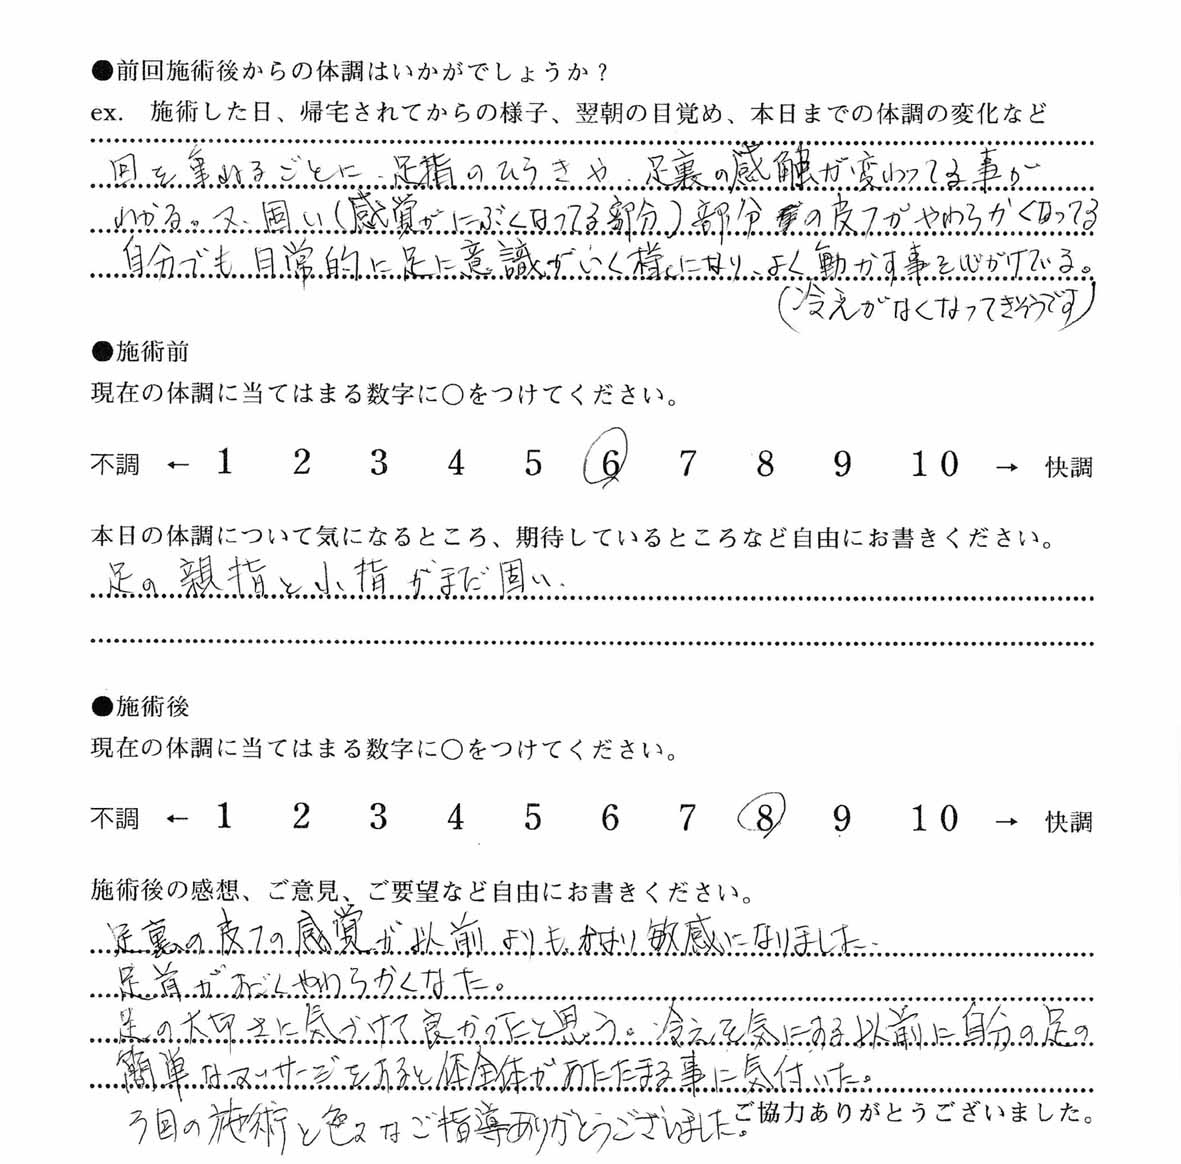 ●前回施術後からの体調はいかがでしょうか？
ex. 施術した日、帰宅されてからの様子、翌朝の目覚め、本日までの体調の変化など
回を重ねるごとに、足指のひらきや、足裏の感触が変わってる事が
わかる。又、固い(感覚がにぶくなってる部分)部分の皮フがやわらかくなってる
自分でも日常的に足に意識がいく様になり、よく動かす事を心がけている。
(冷えがなくなってきそうです)
●施術前
現在の体調に当てはまる数字に○をつけてください。
不調 ← 1 2 3 4 5 6 7 8 9 10 → 快調
本日の体調について気になるところ、期待しているところなど自由にお書きください。
足の親指と小指がまだ固い.
●施術後
現在の体調に当てはまる数字に○をつけてください。
不調 ← 1 2 3 4 5 6 7 8 9 10 → 快調
施術後の感想、ご意見、ご要望など自由にお書きください。
足裏の皮フの感覚が以前よりもかなり敏感になりました.
足首がすごくやわらかくなた。
足の大切さに気づけて良かったと思う。冷えを気にする以前に自分の足の
簡単なマッサージをすると体全体があたたまる事に気付いた。
3回の施術と色々なご指導ありがとうございました。
ご協力ありがとうございました。